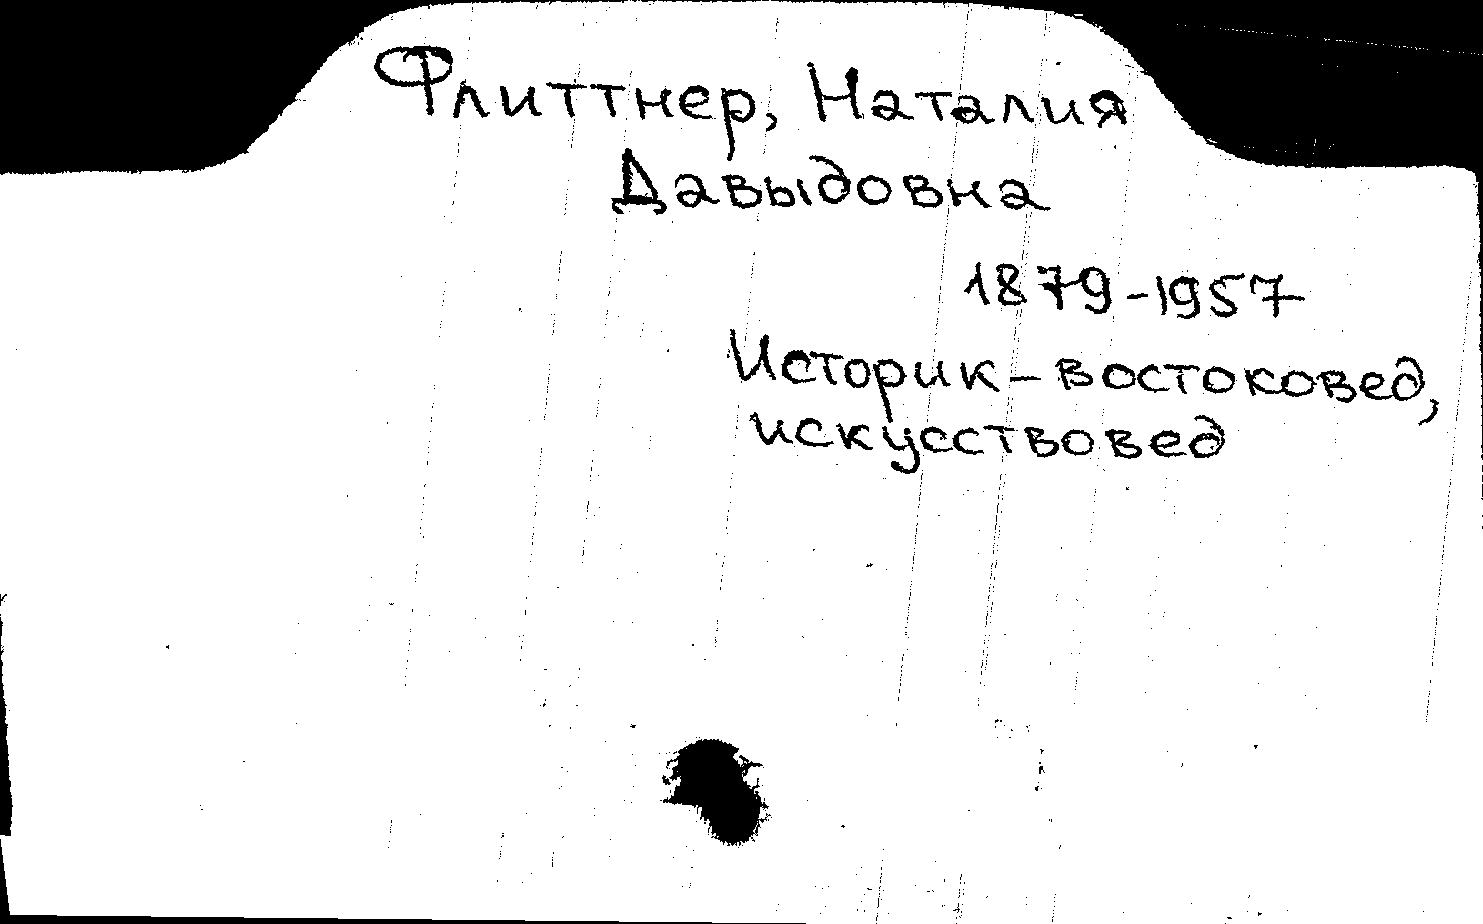 Флиттнер, Наталия
Давыдовна
1879-1957
Историк-востоковед,
искусствовед